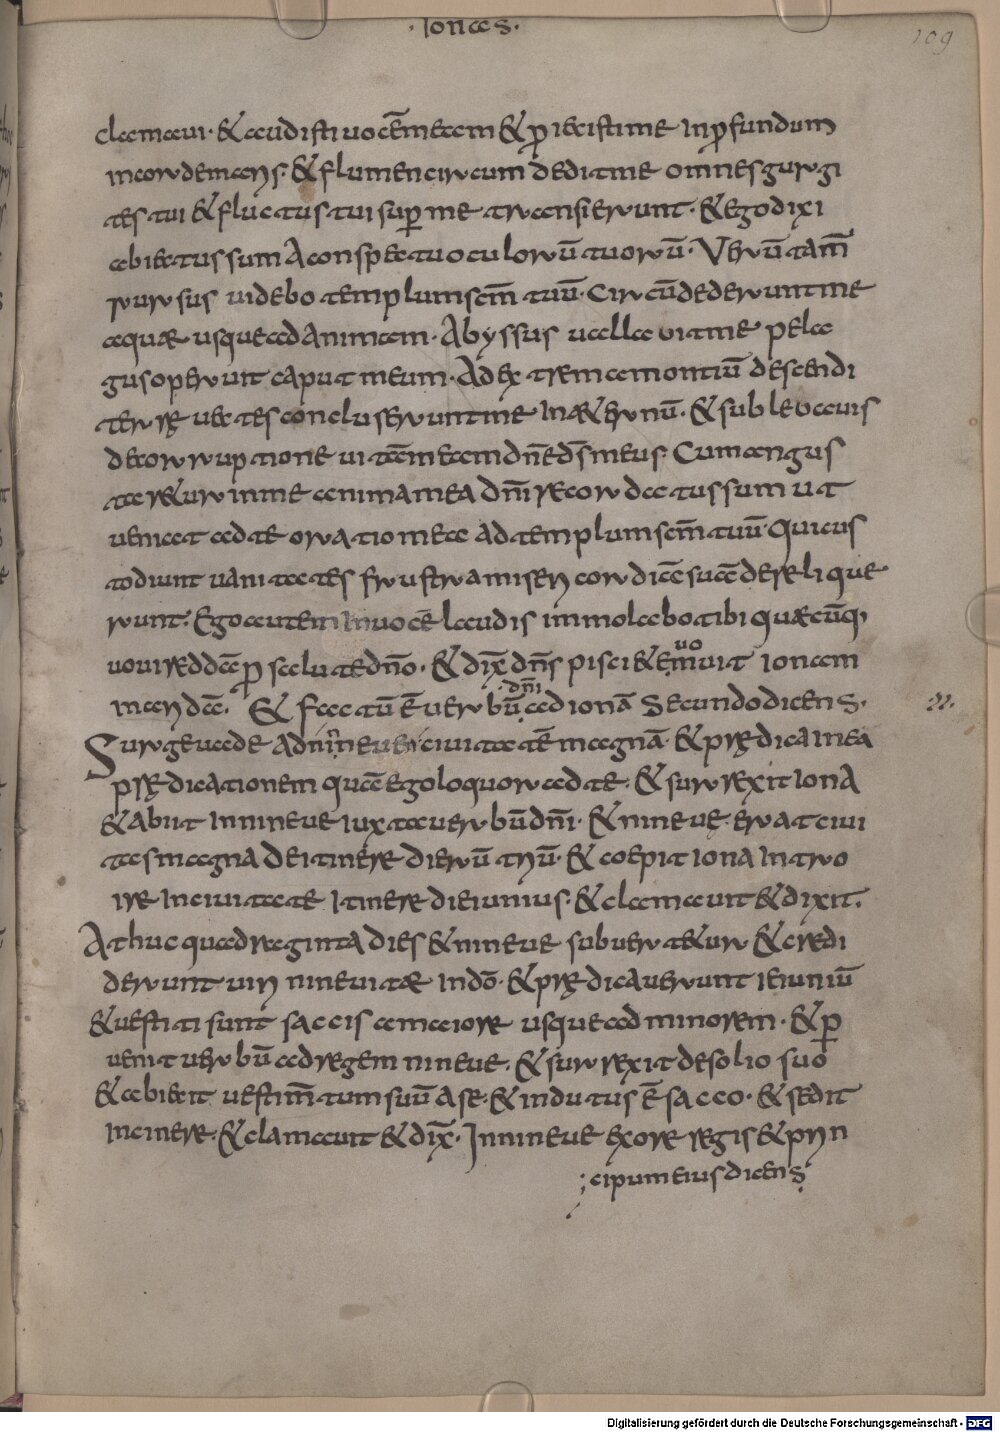 · Ionas ·
109
clamaui · & audisti uocēmeam & ꝓiecistime inꝓfundum
incordemaris · & flumencircum deditme omnesgurgi
tes tui & fluctus tui suꝑme transierunt · & egodixi
abiectussum Aconspectuoculorū tuorū · Verūtam̄
rursus uidebo templumscm̄ tuū · Circūdederuntme
aquæ usqueadanimam · Abyssus uallauitme pela
gusoperuit caput meum · Adextremamontiū descendi
terrę uectesconcluseruntme inæt&ernū · & subleuauis
decorruptione uitāmeamdn̄ed̄smeus · Cumangus
tar&urinme animamea dn̄i recordatussum ut
ueniat adte oratiomea ad templumscm̄ tuū · Quicus
todiunt uanitates frustramisericordiāsuāderelique
runt · Egoautem inuocē laudis immolabotibi quæcūq;
uouireddāꝓ salutedn̄o · & dix̄ dn̄s pisci & e
uo
muit Ionam
inaridā · & factūē uerbū
· dn̄i
adionā Secundodicens · 22.
Surgeuade Adnineuenciuitatē magnā · & prędicainea
prędicationem quāegoloquoradte · & surrexitiona
& abiit innineue iuxtauerbūdn̄i · & nineuę · eratciui
tasmagna deitinere dierū triū · & coepit Iona intro
ire inciuitate itinere dieiunius · & clamauit & dixit.
Athuc quadraginta dies & nineue subuert&ur & credi
derunt uiri nineuitæ indō · & prędicauerunt ieiuniū
& uestiti sunt saccis amaiore usqueadminorem · & ꝑ
uenit uerbū adregem nineue · & surrexit desolio suo
& abiecit uestim̄tumsuū ase · & indutusē sacco · & sedit
incinere · & clamauit & dix̄ · Innineue exore regis & prin
cipumeiusdicens
Digitalisierung gefördert durch die Deutsche Forschungsgemeinschaft - DFG